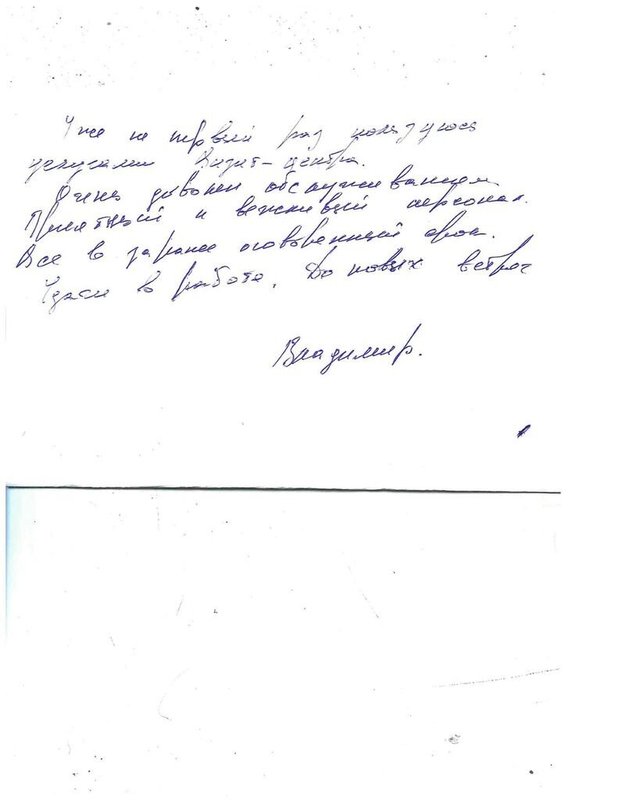 Уже не первый раз пользуюсь
услугами Визит-центра.
Очень доволен обслуживанием.
Приятный и вежливый персонал.
Все в заранее оговоренный срок.
Удачи в работе. До новых встреч
Владимир.